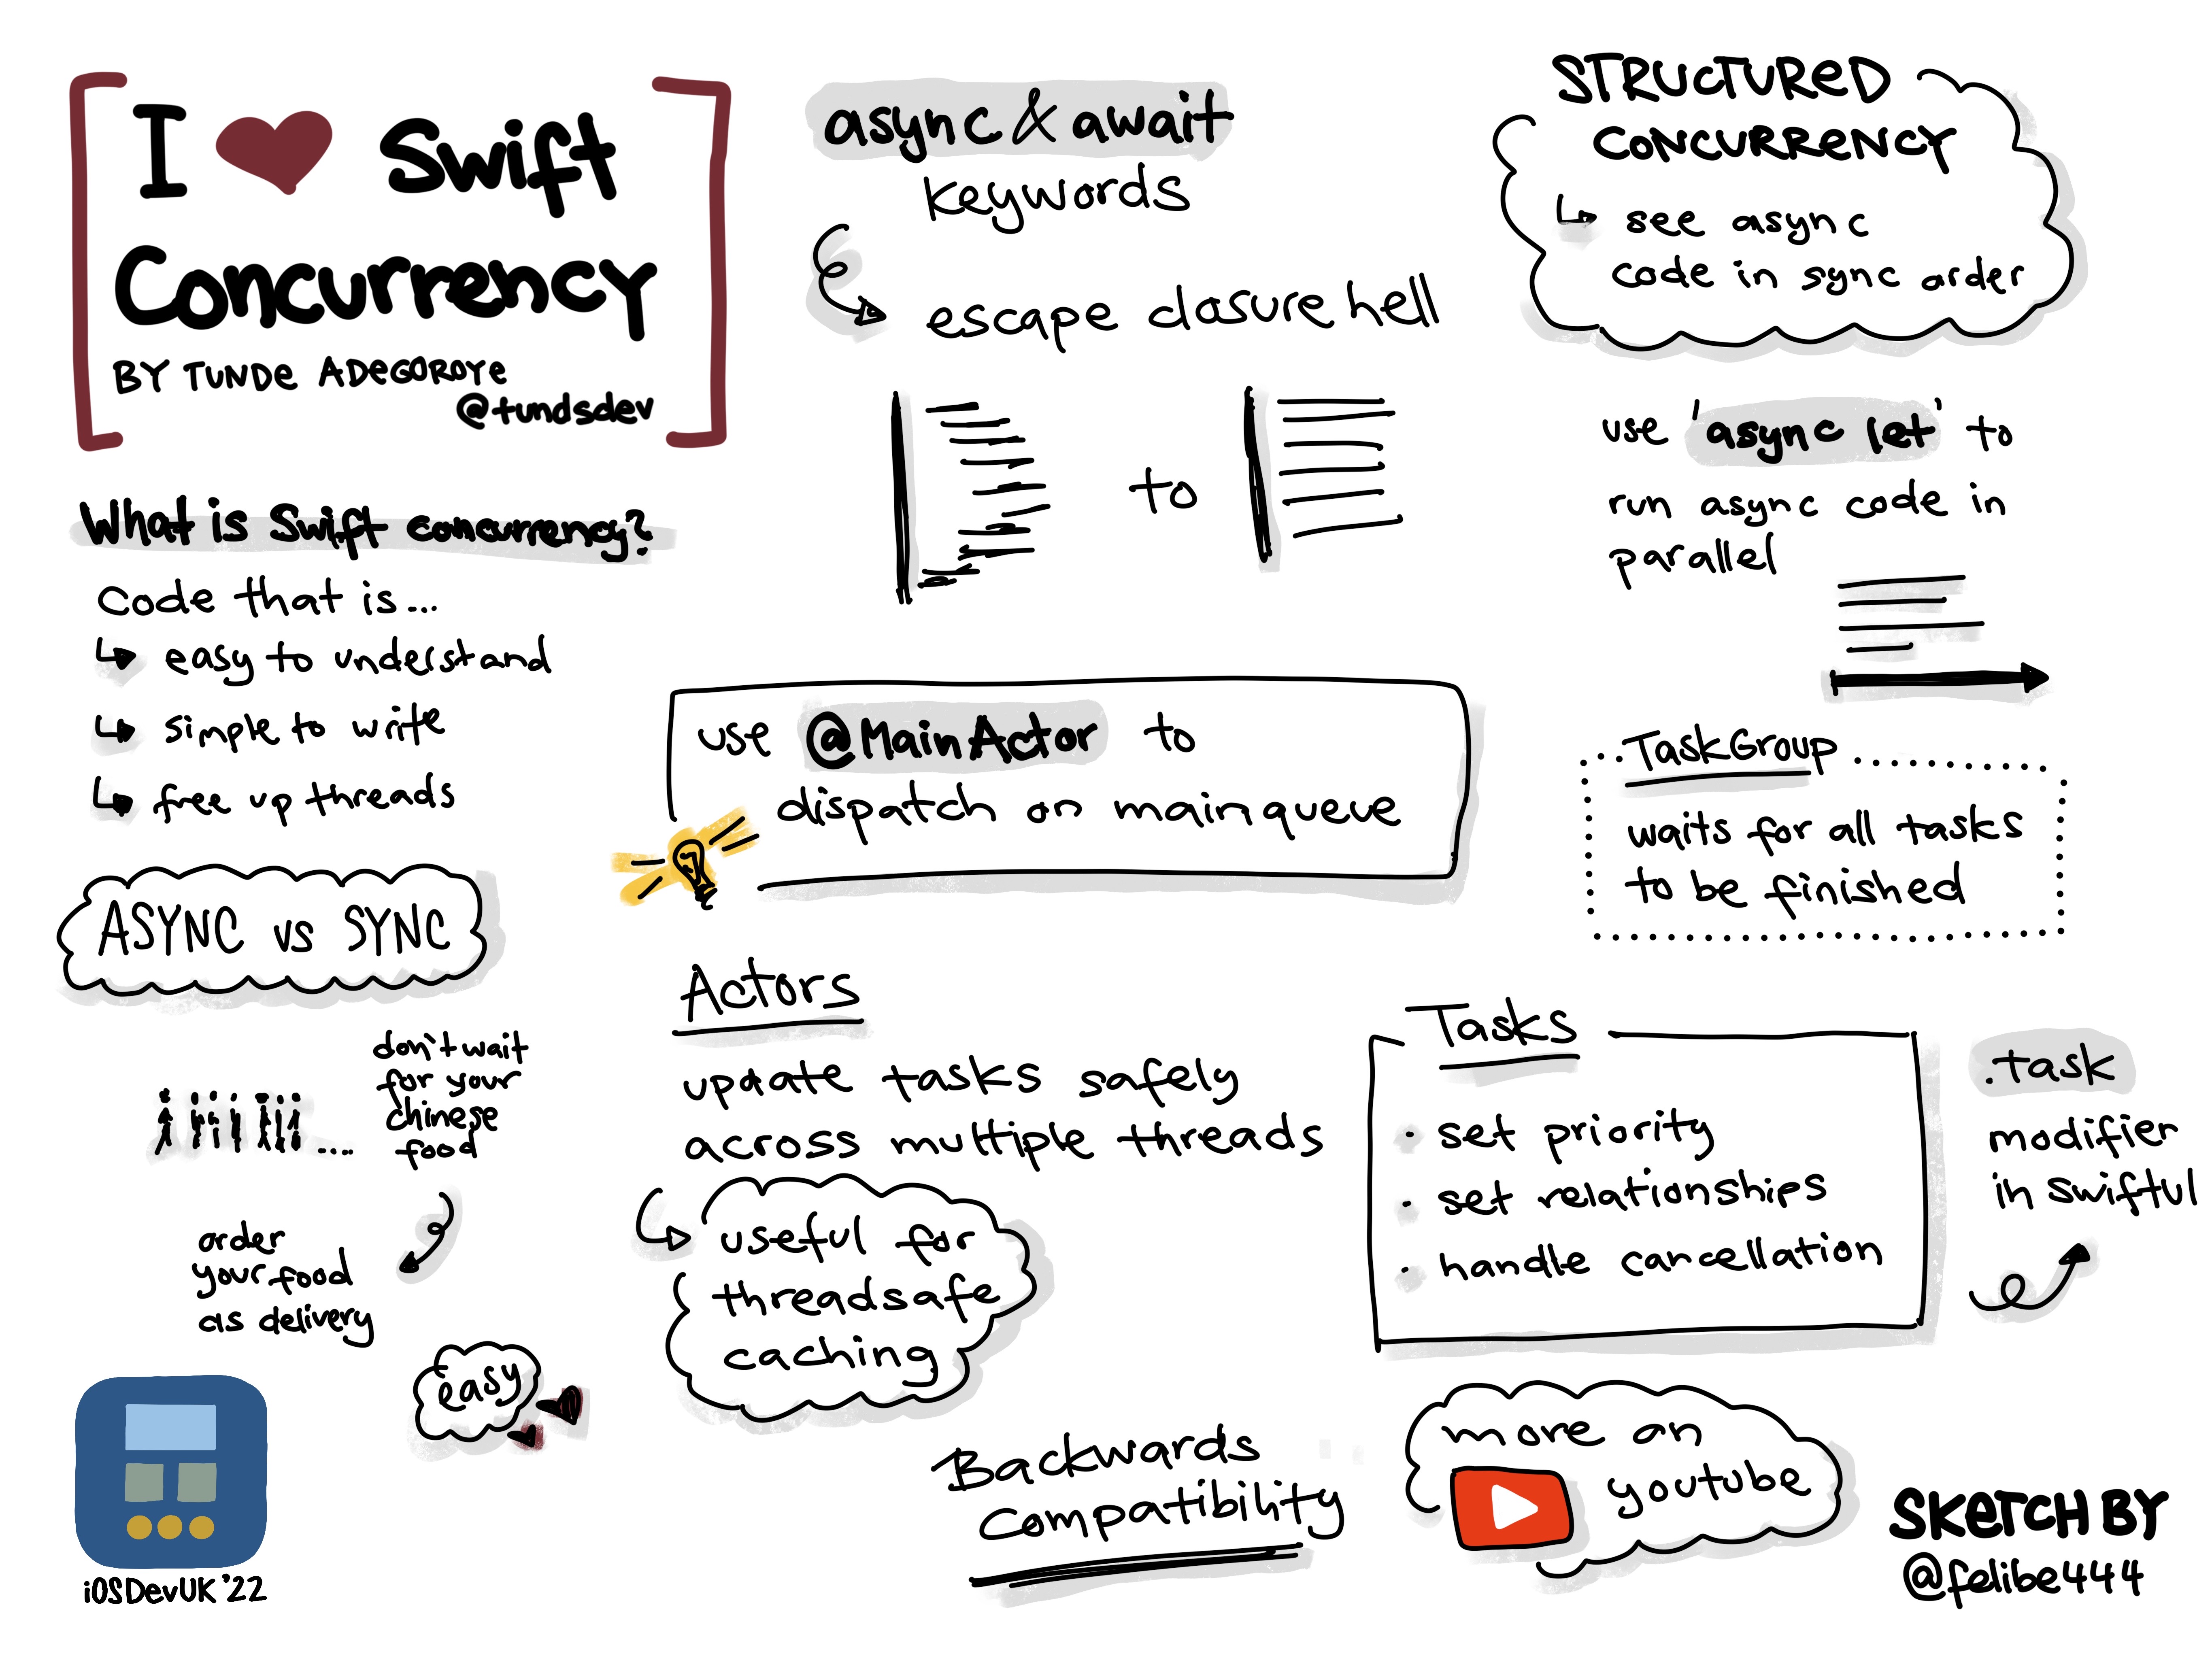 I ❤ Swift
Concurrency
BY TUNDE ADEGOROYE
@tundsdev
What is Swift concurrency?
Code that is...
↳ easy to understand
↳ simple to write
↳ free up threads
ASYNC vs SYNC
don't wait
for your
chinese
food
order
your food
as delivery
easy
iOSDevUK '22
async & await
keywords
escape closure hell
to
use @MainActor to
dispatch on main queue
Actors
update tasks safely
across multiple threads
useful for
threadsafe
caching
Backwards
Compatibility
STRUCTURED
CONCURRENCY
↳ see async
code in sync order
use 'async let' to
run async code in
parallel
TaskGroup
waits for all tasks
to be finished
Tasks
• set priority
• set relationships
• handle cancellation
.task
modifier
in SwiftUI
more on
youtube
SKETCH BY
@felibe444